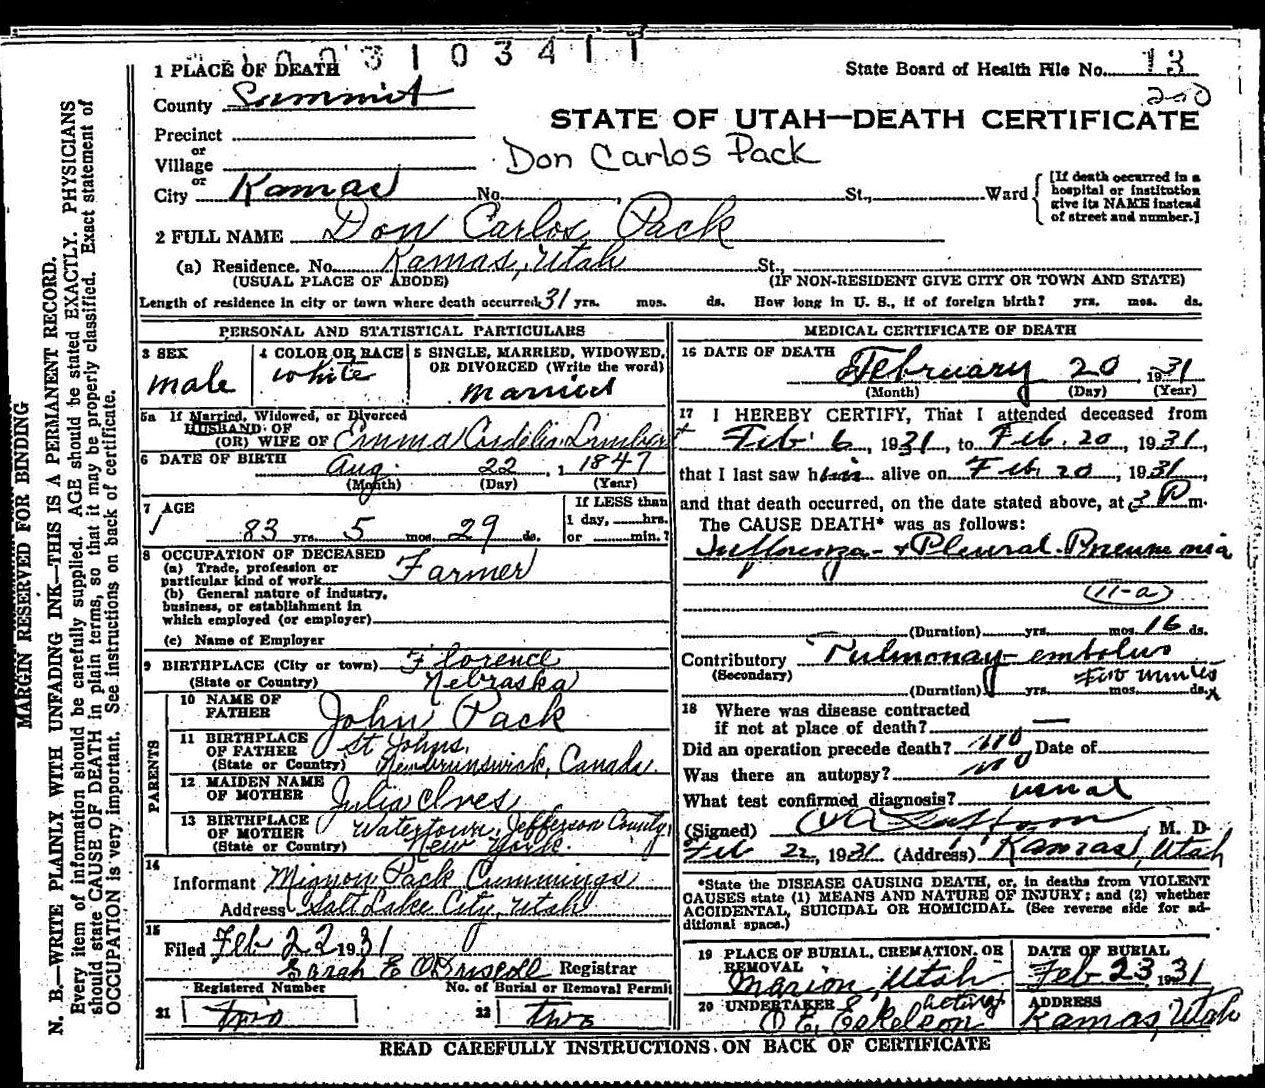 1003103411
1 PLACE OF DEATH
State Board of Health File No. 13
200
County Summit
STATE OF UTAH—DEATH CERTIFICATE
Precinct
or
Village
Don Carlos Pack
or
City Kamas No. , St., Ward
[If death occurred in a hospital or institution give its NAME instead of street and number.]
2 FULL NAME Don Carlos Pack
(a) Residence. No. Kamas, Utah St.,
(USUAL PLACE OF ABODE) (IF NON-RESIDENT GIVE CITY OR TOWN AND STATE)
Length of residence in city or town where death occurred 31 yrs. mos. ds. How long in U. S., if of foreign birth? yrs. mos. ds.
PERSONAL AND STATISTICAL PARTICULARS
3 SEX
male
4 COLOR OR RACE
white
5 SINGLE, MARRIED, WIDOWED,
OR DIVORCED (Write the word)
married
5a If Married, Widowed, or Divorced
HUSBAND OF
(OR) WIFE OF Emma Cordelia
6 DATE OF BIRTH Aug. 22, 1847
(Month) (Day) (Year)
7 AGE
83 yrs. 5 mos. 29 ds.
If LESS than
1 day, hrs.
or min.?
8 OCCUPATION OF DECEASED
(a) Trade, profession or
particular kind of work Farmer
(b) General nature of industry,
business, or establishment in
which employed (or employer)
(c) Name of Employer
9 BIRTHPLACE (City or town) Florence
(State or Country) Nebraska
PARENTS
10 NAME OF
FATHER John Pack
11 BIRTHPLACE
OF FATHER St Johns,
(State or Country) Newbrunswick, Canada.
12 MAIDEN NAME
OF MOTHER Julia Ives
13 BIRTHPLACE
OF MOTHER Watertown, Jefferson County,
(State or Country) New York.
14
Informant Mignon Pack Cummings
Address Salt Lake City, Utah
15
Filed Feb 22 1931
Sarah E O'Driscoll Registrar
Registered Number No. of Burial or Removal Permit
21 Two 22 two
MEDICAL CERTIFICATE OF DEATH
16 DATE OF DEATH
February 20, 1931
(Month) (Day) (Year)
17 I HEREBY CERTIFY, That I attended deceased from
Feb 6, 1931, to Feb. 20, 1931,
that I last saw him alive on Feb 20, 1931,
and that death occurred, on the date stated above, at 3 P m.
The CAUSE DEATH* was as follows:
Influenza - & Pleural-Pneumonia
(11-a)
(Duration) yrs. mos 16 ds.
Contributory Pulmonay embolus
(Secondary) Two minutes
(Duration) yrs. mos. ds.
18 Where was disease contracted
if not at place of death? —
Did an operation precede death? no Date of
Was there an autopsy? no
What test confirmed diagnosis? usual
(Signed) M. D.
Feb 22, 1931 (Address) Kamas, Utah
*State the DISEASE CAUSING DEATH, or, in deaths from VIOLENT
CAUSES state (1) MEANS AND NATURE OF INJURY; and (2) whether
ACCIDENTAL, SUICIDAL OR HOMICIDAL. (See reverse side for ad-
ditional space.)
19 PLACE OF BURIAL, CREMATION, OR
REMOVAL
Marion, Utah
DATE OF BURIAL
Feb 23, 1931
20 UNDERTAKER acting
O E. Eskelson
ADDRESS
Kamas, Utah
READ CAREFULLY INSTRUCTIONS ON BACK OF CERTIFICATE
MARGIN RESERVED FOR BINDING
N. B.—WRITE PLAINLY WITH UNFADING INK—THIS IS A PERMANENT RECORD.
Every item of information should be carefully supplied. AGE should be stated EXACTLY. PHYSICIANS
should state CAUSE OF DEATH in plain terms, so that it may be properly classified. Exact statement of
OCCUPATION is very important. See instructions on back of certificate.